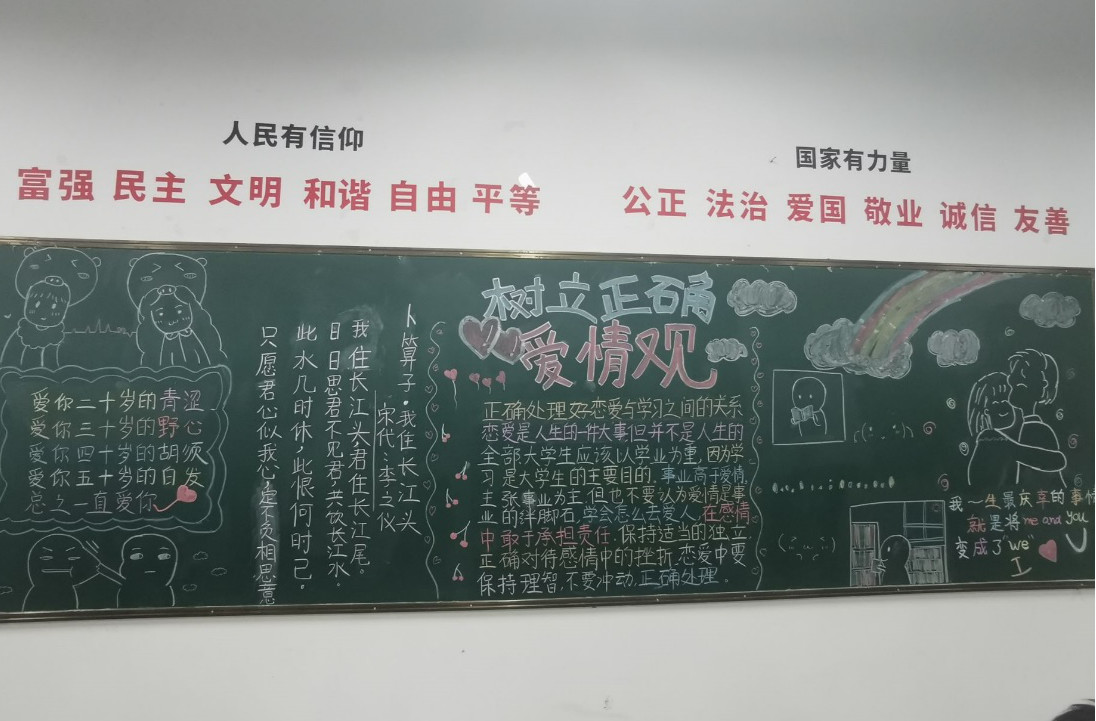 人民有信仰
国家有力量
富强 民主 文明 和谐 自由 平等
公正 法治 爱国 敬业 诚信 友善
爱你二十岁的青涩
爱你三十岁的野心
爱你四十岁的胡须
爱你五十岁的白发
总之一直爱你
卜算子·我住长江头
宋代:李之仪
我住长江头君住长江尾。
日日思君不见君,共饮长江水。
此水几时休,此恨何时已。
只愿君心似我心,定不负相思意
树立正确
爱情观
正确处理好恋爱与学习之间的关系
恋爱是人生的一件大事但并不是人生的
全部,大学生应该以学业为重,因为学
习是大学生的主要目的.事业高于爱情.
主张事业为主,但也不要认为爱情是事
业的绊脚石,学会怎么去爱人,在感情
中敢于承担责任.保持适当的独立.
正确对待感情中的挫折.恋爱中要
保持理智,不要冲动.正确处理.
我一生最庆幸的事情
就是将me and you
变成了"we"